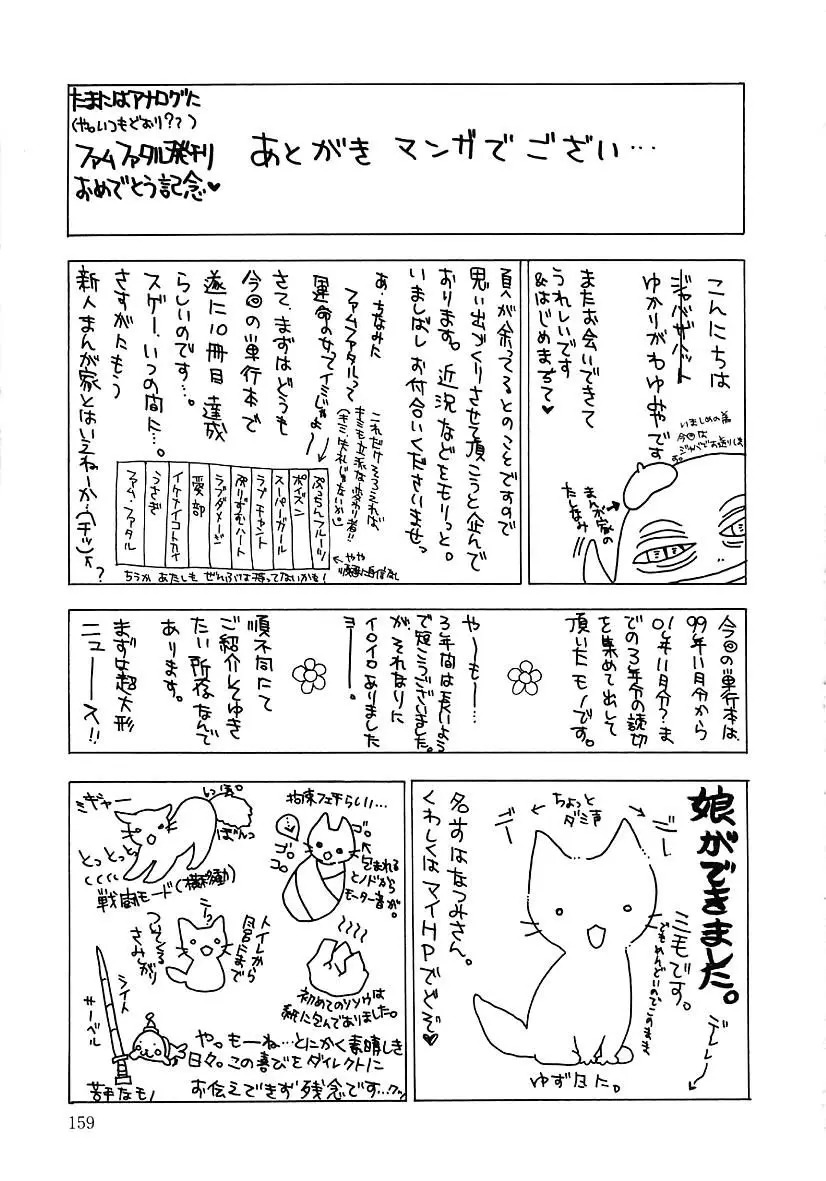 たまにはアナログに
(や。いつもどおり?て)
ファムファタル発刊
おめでとう記念♥
あとがき マンガで ござい…
こんにちは
ジャバザハット
ゆかりがわゆみやです
またお会いできて
うれしいです
&はじめまちて♥
いましめの為
今回は
ジャバでお送りします。
まんが家の
たしなみ
頁が余ってるとのことですので
思い出づくりさせて頂こうと企んで
おります。近況などをもりっと。
いましばしお付合いくださいませっ
あ、ちなみに
ファムファタルって
運命の女ってイミじゃよ〜
さて、まずはどうも
今回の単行本で
遂に10冊目達成
らしいのです…。
スゲー、いつの間に…。
さすがにもう
新人まんが家とはいえねーか(チッ)
これだけそろえれば、
キミも立派な変わり者!!
(キミ失礼じゃないか)
ぷっちんフルーツ
ポイズン
スーパーガール
ラブチャント
ぷりずむハート
ラブダメージ
愛部
イケナイコトカイ
うさぎ
ファム・ファタル
↑やや
順番に自信なし
ちうか あたしも ぜんぶは持ってないかも!
今回の単行本は、
99年11月分から
01年11月分?ま
での3年分の読切
を集めて出して
頂いたモノです。
や〜も〜…
3年間は長いよう
で短こうございました。
が、それなりに
イロイロありました
ヨー。
順不同にて
ご紹介してゆき
たい所存なんで
あります。
まずは超大形
ニュース!!
娘ができました。
デレレ〜
ミモです。
でもめんどいのでこのまま
ニー
ちょっと
ダミ声
ニー
名まえはなつみさん。
くわしくはマイHPでどぞ♥
ゆずえに。
拘束フェチらしい…
ゴロ。
ゴロ
ゴロ
包まれる
とノドから
モーター音が。
ミギャー
しっぽ。
ぼんっ
とっとっとっ
戦闘モード(横移動)
トイレから
風呂まで
ついてくる
さみしがり
初めてのソソウは
紙に包んでありました。
ライト
サーベル
苦手なモノ
や。も〜ね…とにかく素晴しき
日々。この喜びをダイレクトに
お伝えできず残念です…クッ
159